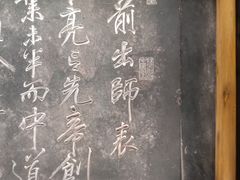 前出師表
亮言先帝創
業未半而中道